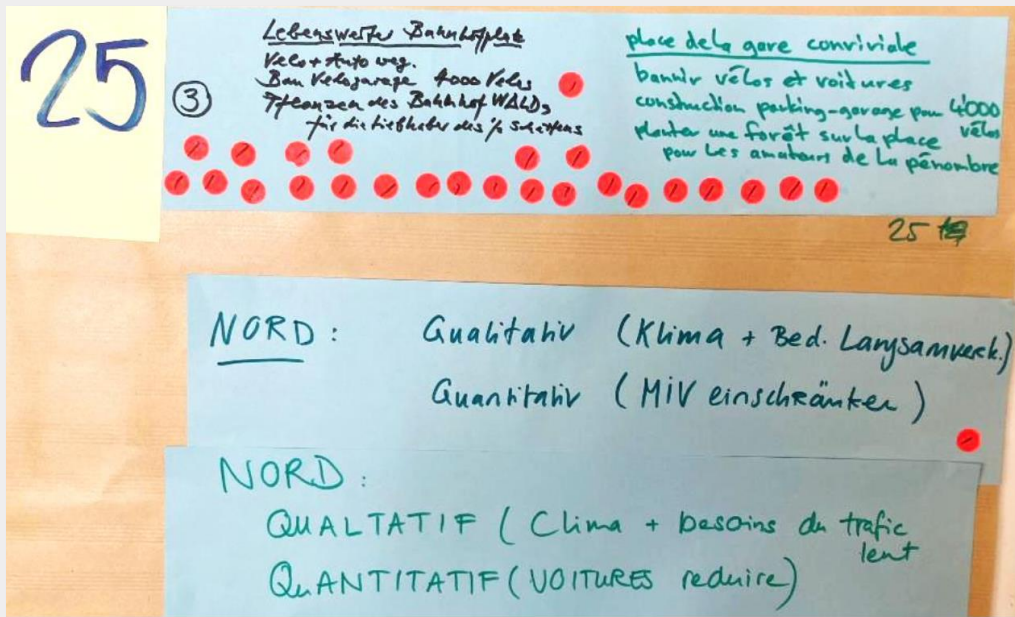 25
③
Lebenswerter Bahnhofplatz
Velo + Auto weg.
Bau Velogarage 4000 Velos
Pflanzen des Bahnhof WALDs
für die Liebhaber des Schattens
place de la gare conviviale
bannir vélos et voitures
construction parking-garage pour 4'000
vélos
planter une forêt sur la place
pour les amateurs de la pénombre
25
NORD: Qualitativ (Klima + Bed. Langsamverk.)
Quantitativ (MiV einschränken)
NORD:
QUALTATIF (Clima + besoins du trafic
lent
QUANTITATIF (VOITURES reduire)